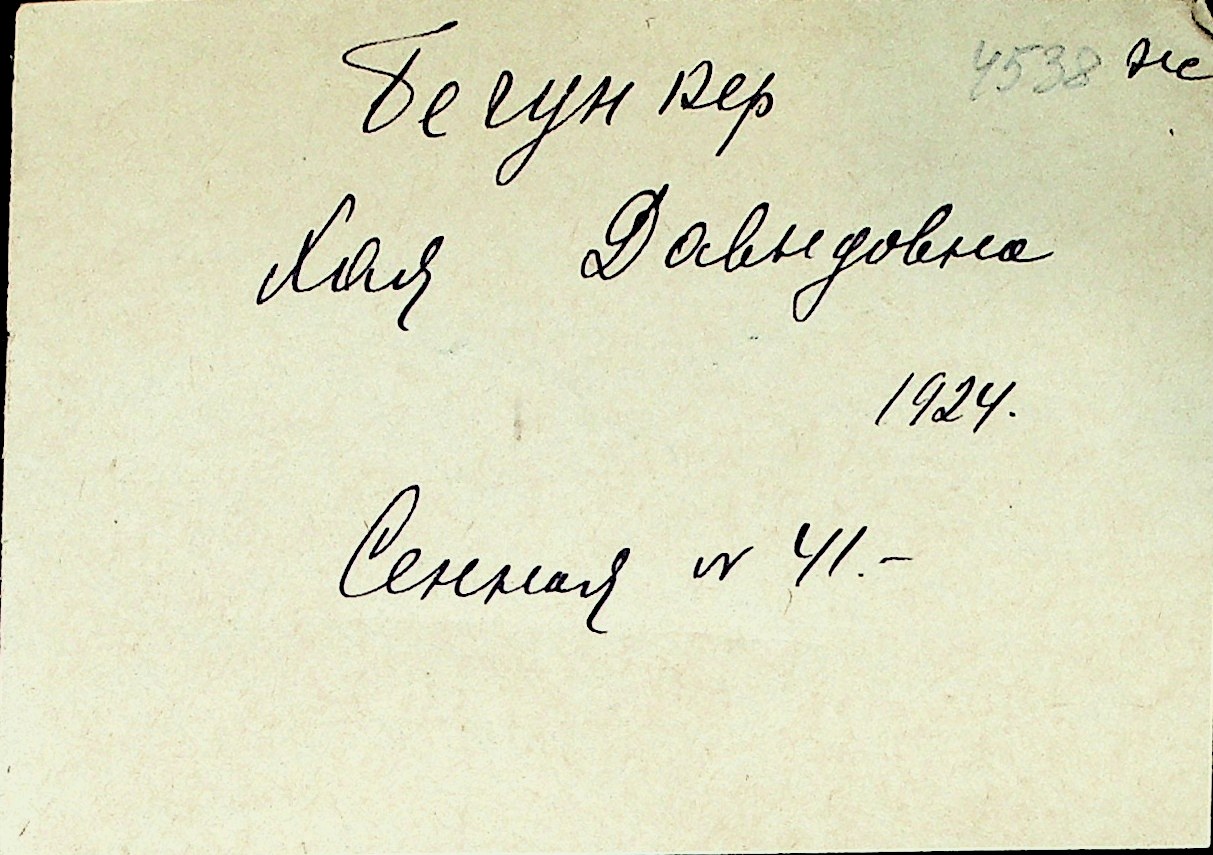 Бегункер 4538 ж
Хая Давыдовна
1924.
Сенная № 41.-